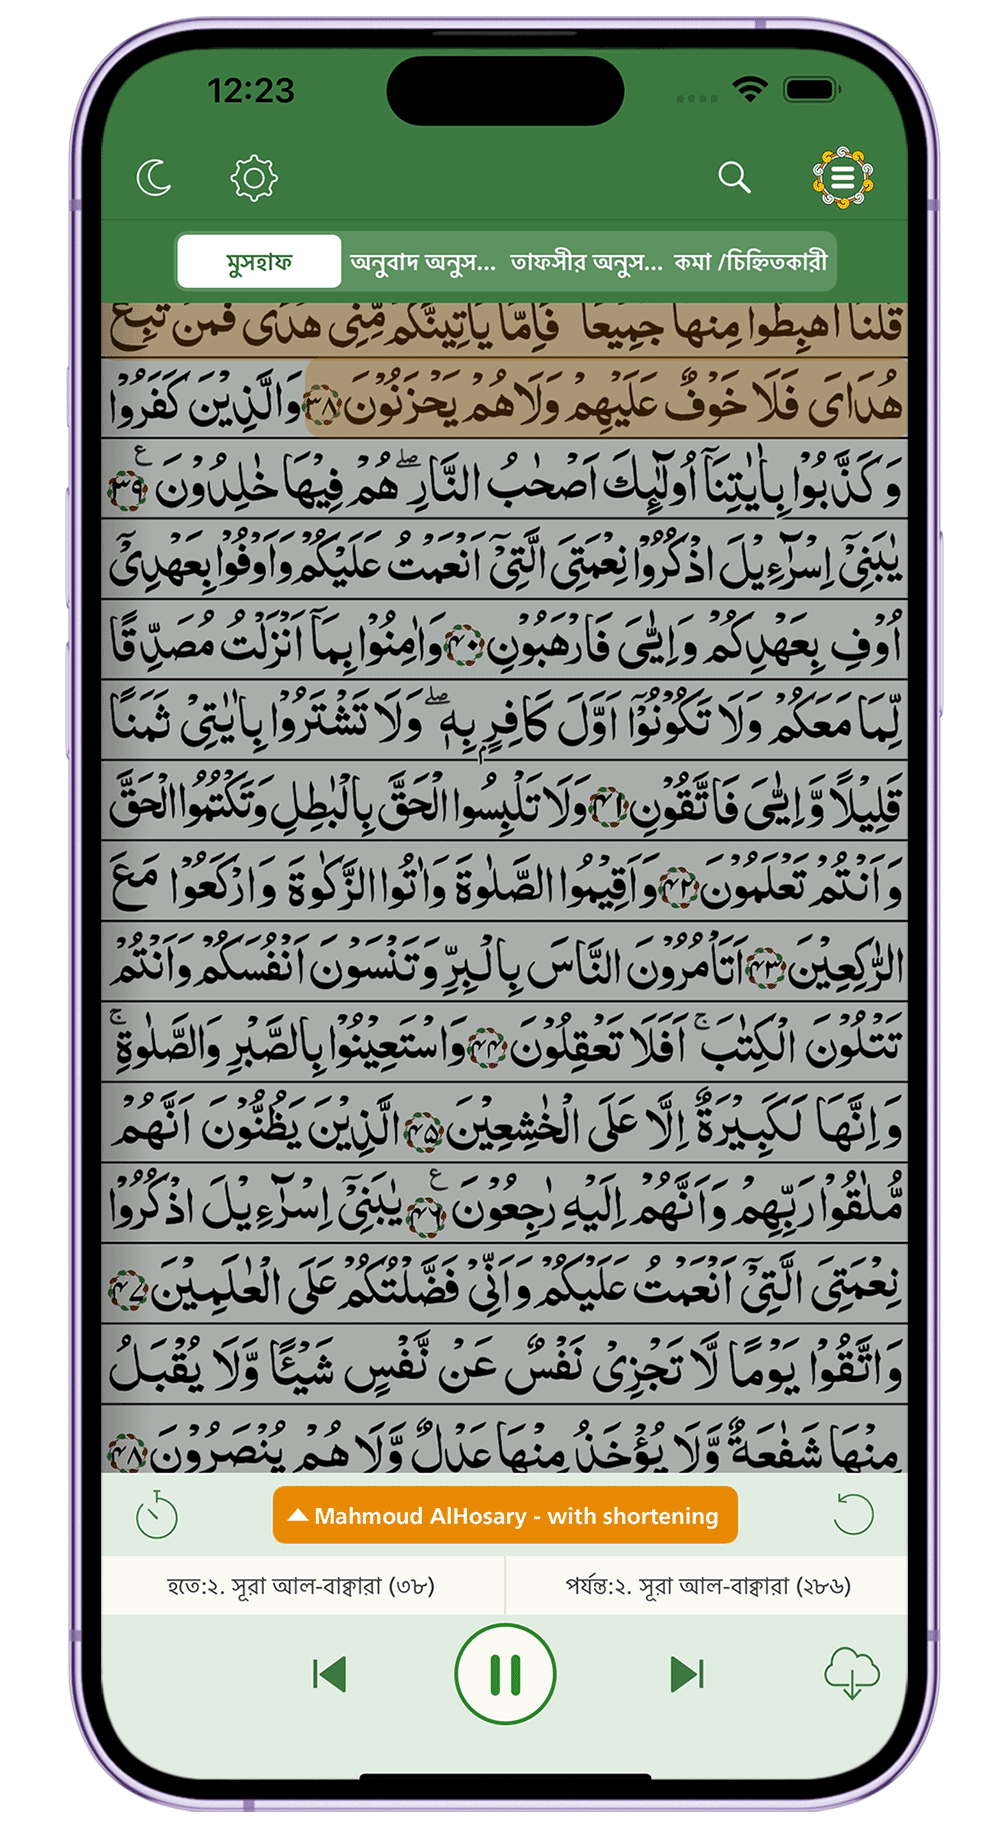 12:23
মুসহাফ
অনুবাদ অনুস...
তাফসীর অনুস...
কমা /চিহ্নিতকারী
قُلْنَا اهْبِطُوْا مِنْهَا جَمِيْعًا فَاِمَّا يَاْتِيَنَّكُمْ مِّنِّىْ هُدًى فَمَنْ تَبِعَ
هُدَاىَ فَلَا خَوْفٌ عَلَيْهِمْ وَلَا هُمْ يَحْزَنُوْنَ ۳۸ وَالَّذِيْنَ كَفَرُوْا
وَكَذَّبُوْا بِاٰيٰتِنَآ اُولٰٓئِكَ اَصْحٰبُ النَّارِ ۖ هُمْ فِيْهَا خٰلِدُوْنَ ۳۹ ع
يٰبَنِىْٓ اِسْرَآءِيْلَ اذْكُرُوْا نِعْمَتِىَ الَّتِىْٓ اَنْعَمْتُ عَلَيْكُمْ وَاَوْفُوْا بِعَهْدِىْٓ
اُوْفِ بِعَهْدِكُمْ وَاِيَّاىَ فَارْهَبُوْنِ ۴۰ وَاٰمِنُوْا بِمَآ اَنْزَلْتُ مُصَدِّقًا
لِّمَا مَعَكُمْ وَلَا تَكُوْنُوْٓا اَوَّلَ كَافِرٍۢ بِهٖ ۖ وَلَا تَشْتَرُوْا بِاٰيٰتِىْ ثَمَنًا
قَلِيْلًا وَّاِيَّاىَ فَاتَّقُوْنِ ۴۱ وَلَا تَلْبِسُوا الْحَقَّ بِالْبٰطِلِ وَتَكْتُمُوا الْحَقَّ
وَاَنْتُمْ تَعْلَمُوْنَ ۴۲ وَاَقِيْمُوا الصَّلٰوةَ وَاٰتُوا الزَّكٰوةَ وَارْكَعُوْا مَعَ
الرّٰكِعِيْنَ ۴۳ اَتَاْمُرُوْنَ النَّاسَ بِالْبِرِّ وَتَنْسَوْنَ اَنْفُسَكُمْ وَاَنْتُمْ
تَتْلُوْنَ الْكِتٰبَ ۚ اَفَلَا تَعْقِلُوْنَ ۴۴ وَاسْتَعِيْنُوْا بِالصَّبْرِ وَالصَّلٰوةِ ۚ
وَاِنَّهَا لَكَبِيْرَةٌ اِلَّا عَلَى الْخٰشِعِيْنَ ۴۵ الَّذِيْنَ يَظُنُّوْنَ اَنَّهُمْ
مُّلٰقُوْا رَبِّهِمْ وَاَنَّهُمْ اِلَيْهِ رٰجِعُوْنَ ۴۶ ع يٰبَنِىْٓ اِسْرَآءِيْلَ اذْكُرُوْا
نِعْمَتِىَ الَّتِىْٓ اَنْعَمْتُ عَلَيْكُمْ وَاَنِّىْ فَضَّلْتُكُمْ عَلَى الْعٰلَمِيْنَ ۴۷
وَاتَّقُوْا يَوْمًا لَّا تَجْزِىْ نَفْسٌ عَنْ نَّفْسٍ شَيْـًٔا وَّلَا يُقْبَلُ
مِنْهَا شَفٰعَةٌ وَّلَا يُؤْخَذُ مِنْهَا عَدْلٌ وَّلَا هُمْ يُنْصَرُوْنَ ۴۸
Mahmoud AlHosary - with shortening
হতে:২. সূরা আল-বাক্বারা (৩৮)
পর্যন্ত:২. সূরা আল-বাক্বারা (২৮৬)